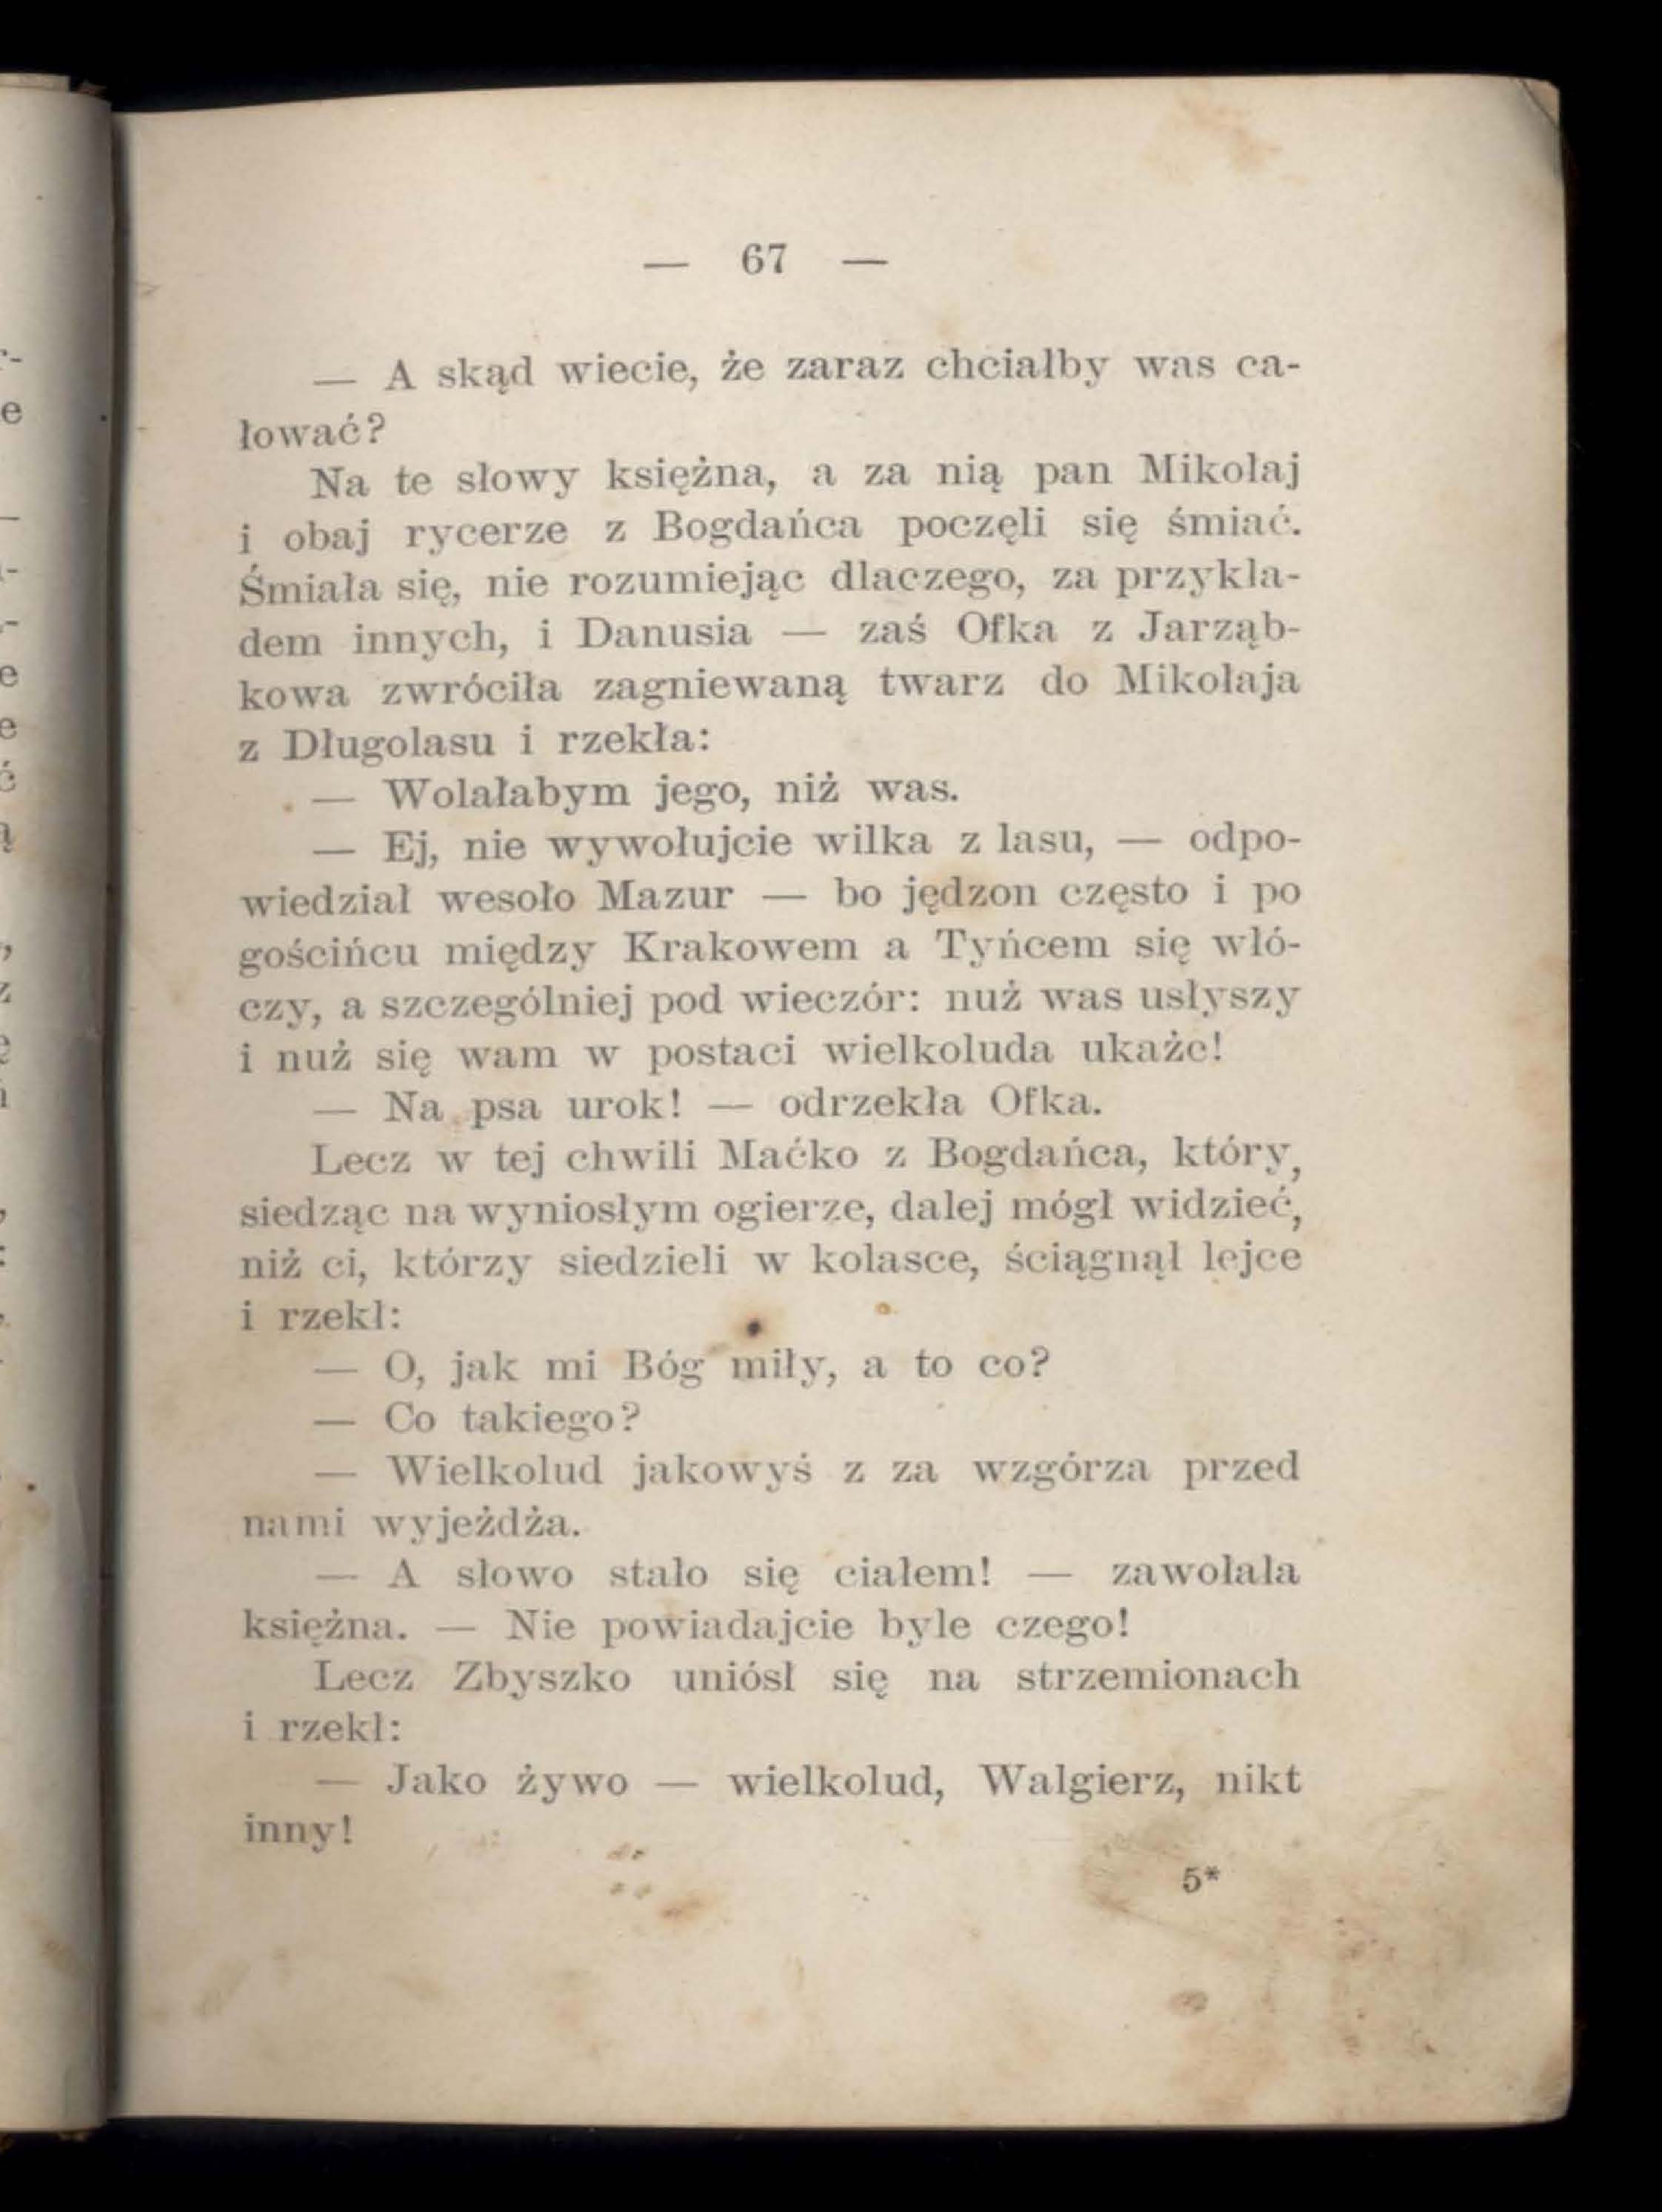 — 67 —
— A skąd wiecie, że zaraz chciałby was ca-
łować?
Na te słowy księżna, a za nią pan Mikołaj
i obaj rycerze z Bogdańca poczęli się śmiać.
Śmiała się, nie rozumiejąc dlaczego, za przykła-
dem innych, i Danusia — zaś Ofka z Jarząb-
kowa zwróciła zagniewaną twarz do Mikołaja
z Długolasu i rzekła:
— Wolałabym jego, niż was.
— Ej, nie wywołujcie wilka z lasu, — odpo-
wiedział wesoło Mazur — bo jędzon często i po
gościńcu między Krakowem a Tyńcem się włó-
czy, a szczególniej pod wieczór: nuż was usłyszy
i nuż się wam w postaci wielkoluda ukaże!
— Na psa urok! — odrzekła Ofka.
Lecz w tej chwili Maćko z Bogdańca, który,
siedząc na wyniosłym ogierze, dalej mógł widzieć,
niż ci, którzy siedzieli w kolasce, ściągnął lejce
i rzekł:
— O, jak mi Bóg miły, a to co?
— Co takiego?
— Wielkolud jakowyś z za wzgórza przed
nami wyjeżdża.
— A słowo stało się ciałem! — zawołała
księżna. — Nie powiadajcie byle czego!
Lecz Zbyszko uniósł się na strzemionach
i rzekł:
— Jako żywo — wielkolud, Walgierz, nikt
inny!
5*